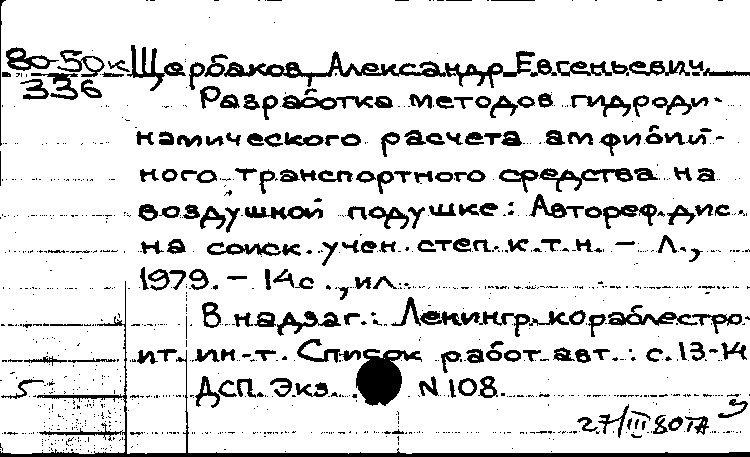 80-50к Щербаков, Александр Евгеньевич.
336
Разработка методов гидроди-
намического расчета амфибий-
ного транспортного средства на
воздушной подушке: Автореф. дис.
на соиск. учен. степ. к.т.н. – Л.,
1979. – 14с., ил.
В надзаг.: Ленингр. кораблестро-
ит. ин-т. Список работ авт.: с. 13-14
5 ДСП. Экз. N 108.
27/III 80